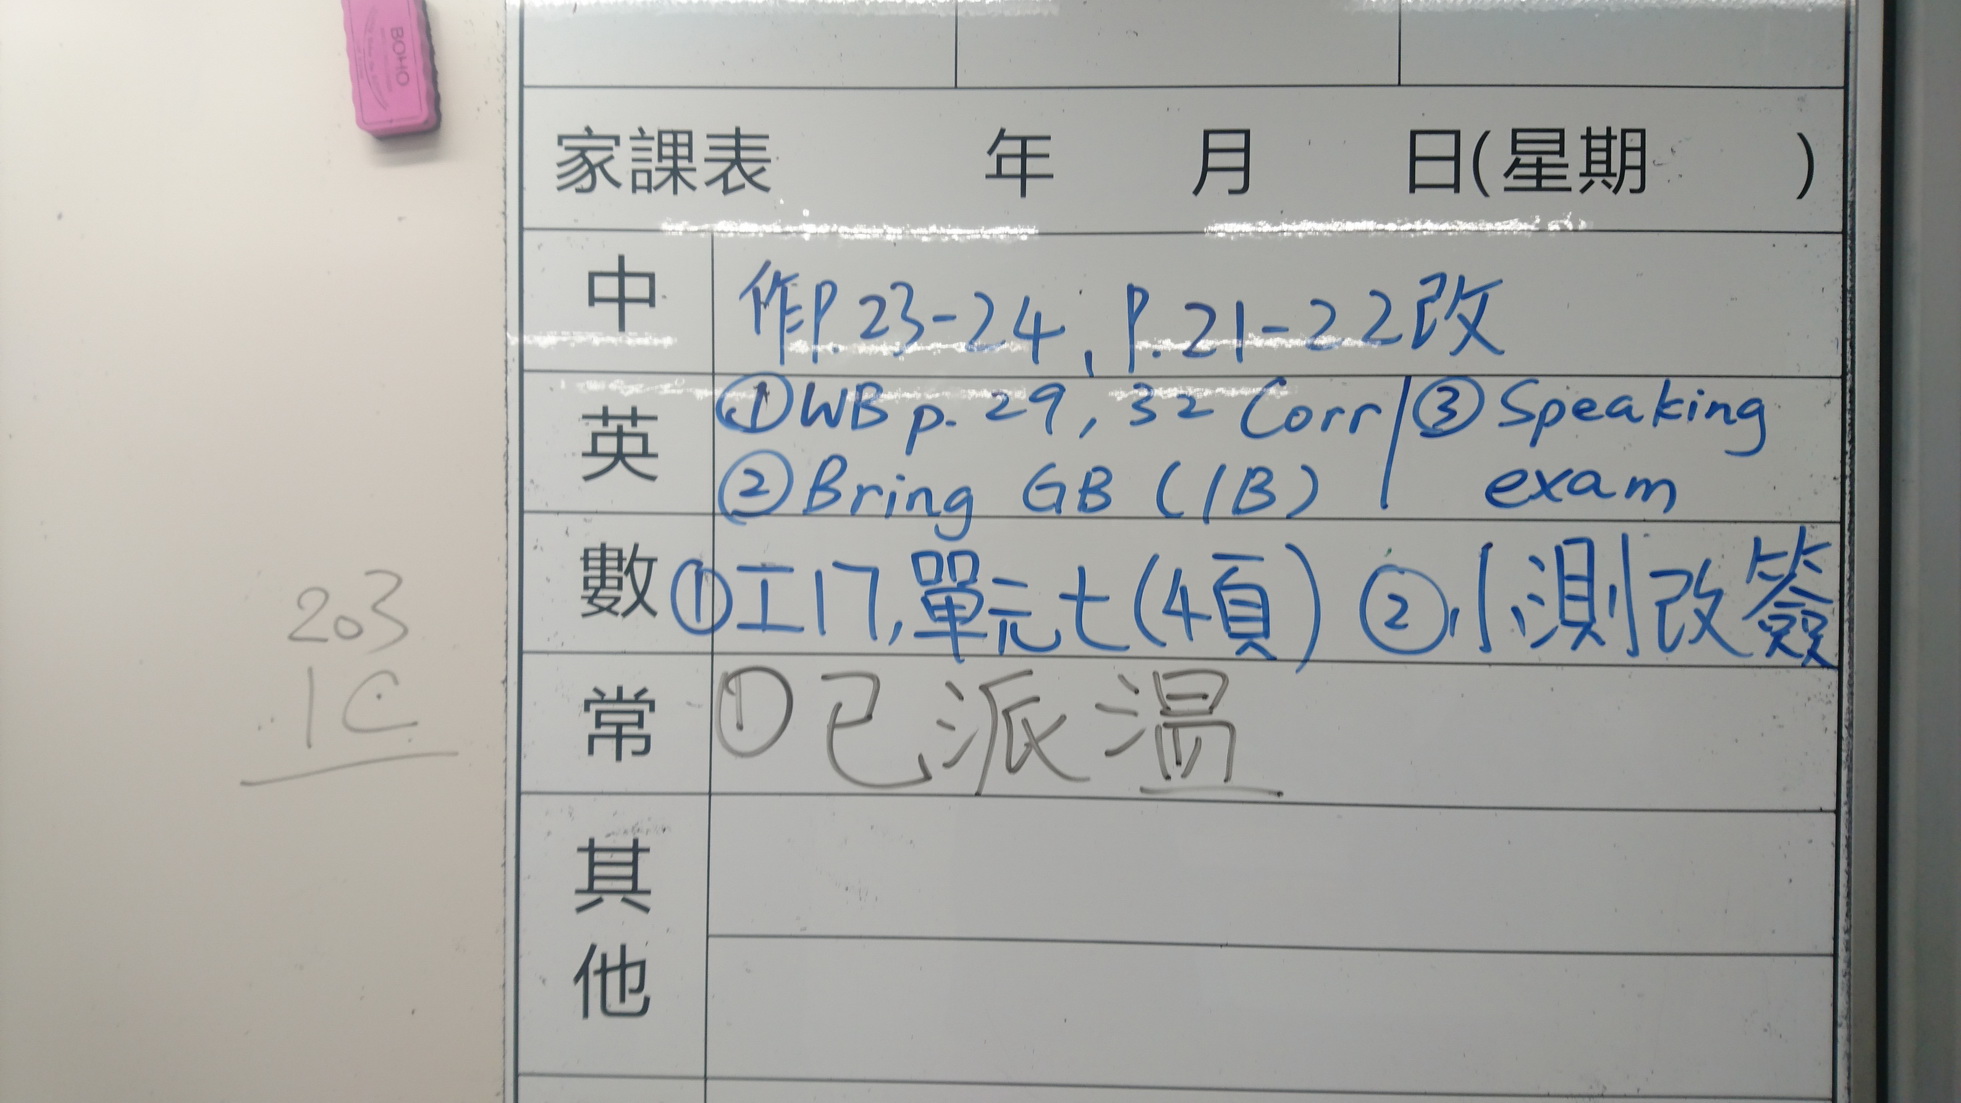 BOHO
家課表 年 月 日(星期 )
中 作P.23-24、P.21-22改
英 ①WB p. 29, 32 Corr / ③ Speaking
②Bring GB (1B) / exam
數 ①工17,單元七(4頁) ②小測改簽
常 ①已派温
其
他
203
1C